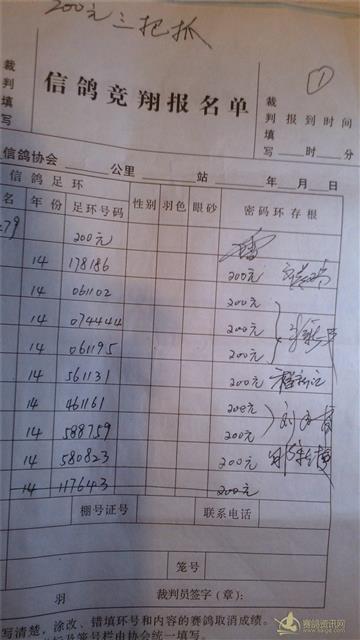 200元三把抓
①
裁判填写
信鸽竞翔报名单
裁判填写 报到时间
时 分
信鸽协会 公里 站 年 月 日
信鸽足环 性别 羽色 眼砂 密码环存根
名 年份 足环号码
79 200元
14 178186 200元
14 061102 200元
14 074444 200元
14 061195 200元
14 561131 200元
14 461161 200元
14 588759 200元
14 580823 200元
14 117643 200元
棚号证号 联系电话
笼号
羽 裁判员签字（章）：
写清楚，涂改、错填环号和内容的赛鸽取消成绩。
笼号栏由协会统一填写。
赛鸽资讯网
www.saige.com